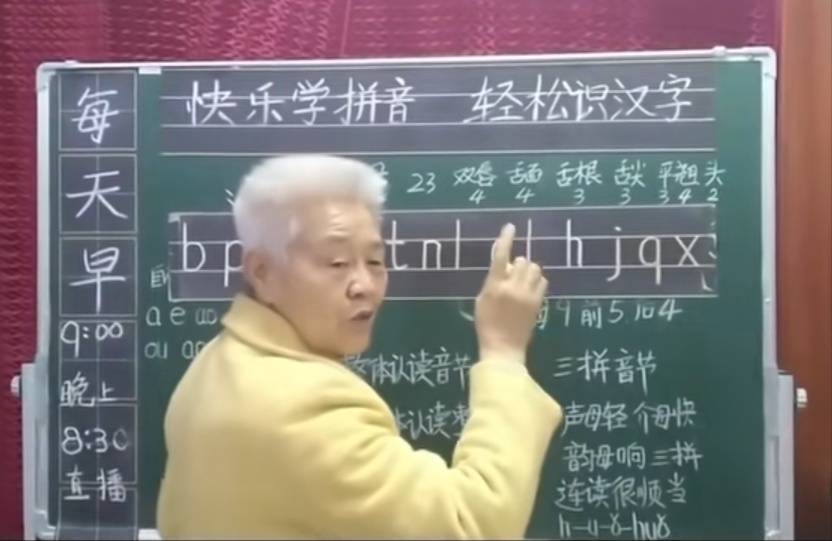 快乐学拼音 轻松识汉字
每
天
早
9:00
晚上
8:30
直播
23 双唇 舌面 舌根 舌尖 平翘 头
4 4 3 3 3 4 2
b p t n l h j q x
a e
ou
9 前5 后4
整体认读音节 三拼音节
体认读 声母轻 介母快
韵母响 三拼
连读很顺当
h-u-ɑ̌-huɑ̌